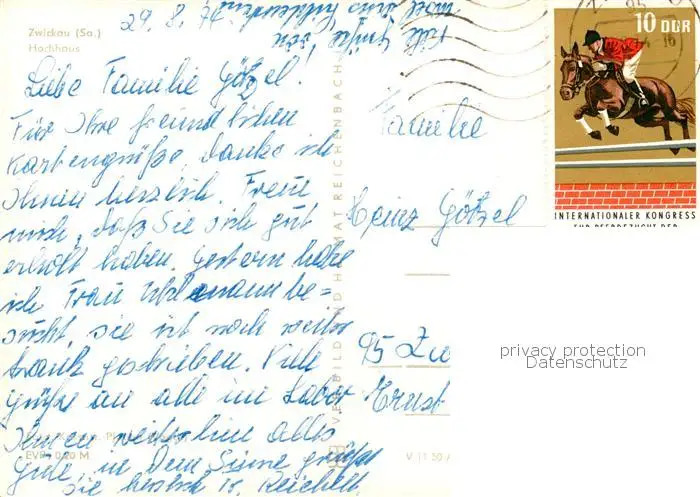 Zwickau (Sa.)
Hochhaus
29.8.74
Liebe Familie Götzel!
Für Ihre freundlichen
Kartengrüße, danke ich
Ihnen herzlich. Freue
mich, daß Sie sich gut
erholt haben. Gestern habe
ich Frau be=
sucht, sie ist noch weiter
krank geschrieben. Viele
Grüße an alle im Labor
Ihnen weiterhin alles
Gute, in dem Sinne grüßt
Sie herzlich Reichelt
EVP 0,20 M
VERLAG BILD UND HEIMAT REICHENBACH
V 11 50
Familie
Heinz Götzel
95 Zw
Ernst
10 DDR
INTERNATIONALER KONGRESS
FÜR PFERDEZUCHT DER
95
privacy protection
Datenschutz